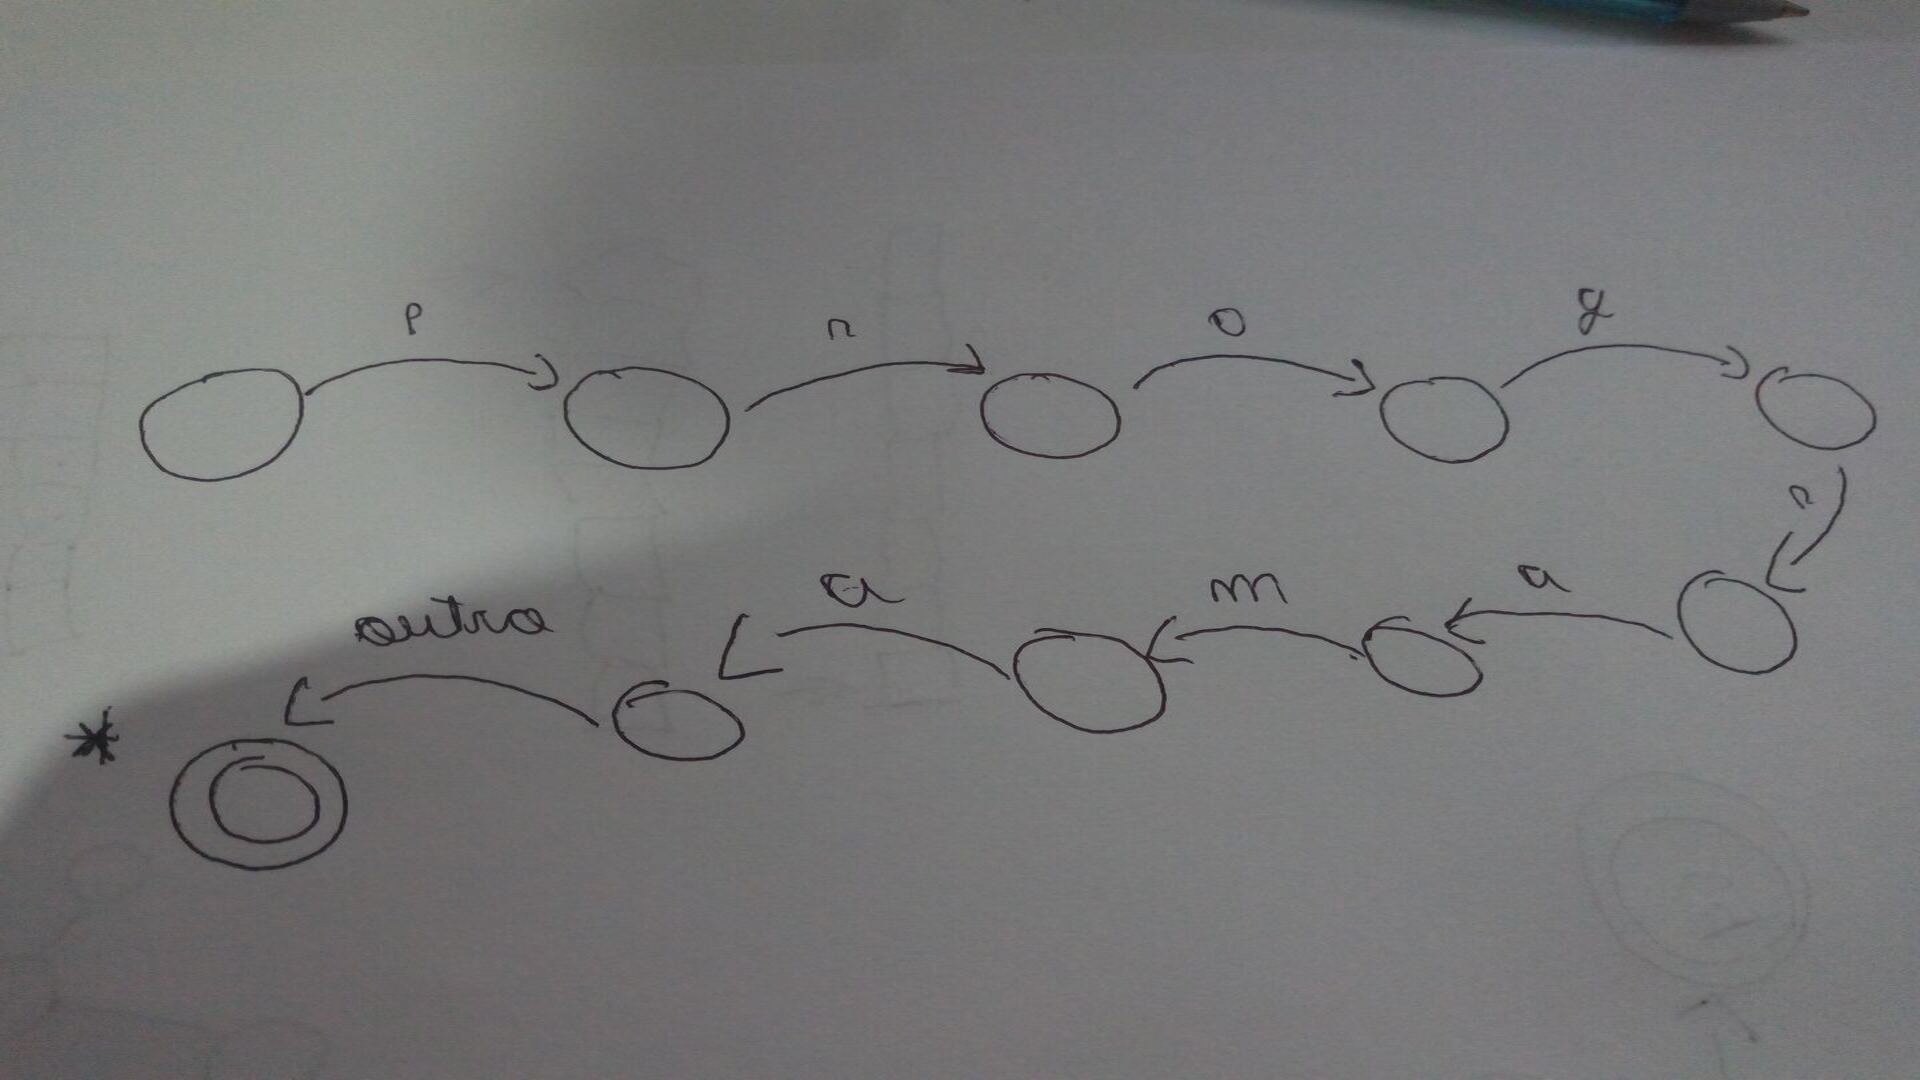 p r o g
r
a m a outro
*